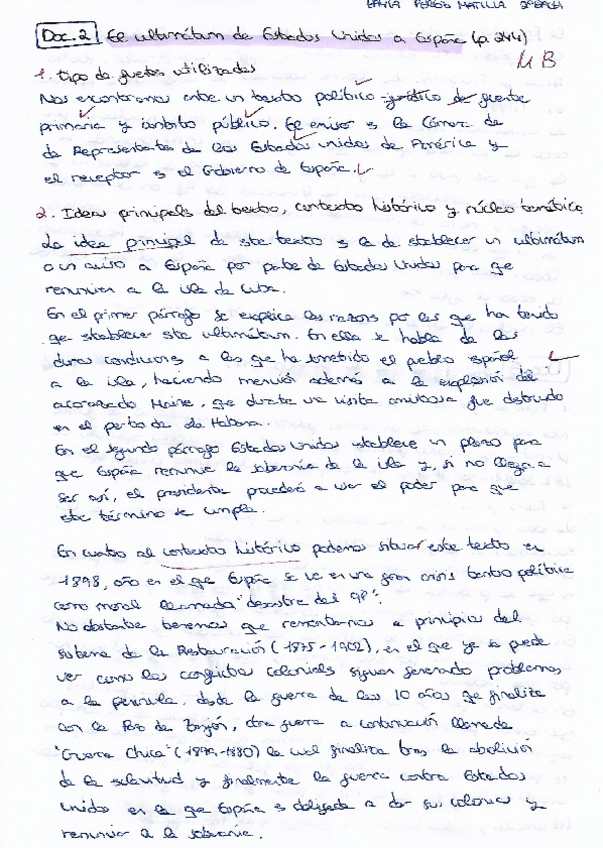 Doc. 2 El ultimátum de Estados Unidos a España (p. 244)
MB
1. tipo de fuentes utilizadas
Nos encontramos ante un texto político-jurídico de fuente
primaria y ámbito público. El emisor es la Cámara de
de Representantes de los Estados Unidos de América y
el receptor es el Gobierno de España.
2. Ideas principales del texto, contexto histórico y núcleo temático
La idea principal de este texto es la de establecer un ultimátum
o un aviso a España por parte de Estados Unidos para que
renuncien a la isla de Cuba.
En el primer párrafo se explica las razones por las que ha tenido
que establecer este ultimátum. En ella se habla de las
duras condiciones a las que ha sometido el pueblo español
a la isla, haciendo mención además a la explosión del
acorazado Maine, que durante una visita amistosa fue destruido
en el puerto de La Habana.
En el segundo párrafo Estados Unidos establece un plazo para
que España renuncie la soberanía de la isla y, si no llega a
ser así, el presidente procederá a usar el poder para que
este término se cumpla.
En cuanto al contexto histórico podemos situar este texto en
1898, año en el que España se ve en una gran crisis tanto política
como moral llamada "desastre del 98".
No obstante tenemos que remontarnos a principios del
sistema de la Restauración (1875-1902), en el que ya se puede
ver como los conflictos coloniales siguen generando problemas
a la península, desde la guerra de los 10 años que finaliza
con la Paz de Zanjón, otra guerra a continuación llamada
"Guerra Chica" (1879-1880) la cual finaliza tras la abolición
de la esclavitud y finalmente la guerra contra Estados
Unidos en la que España es obligada a dar sus colonias y
renunciar a la soberanía.